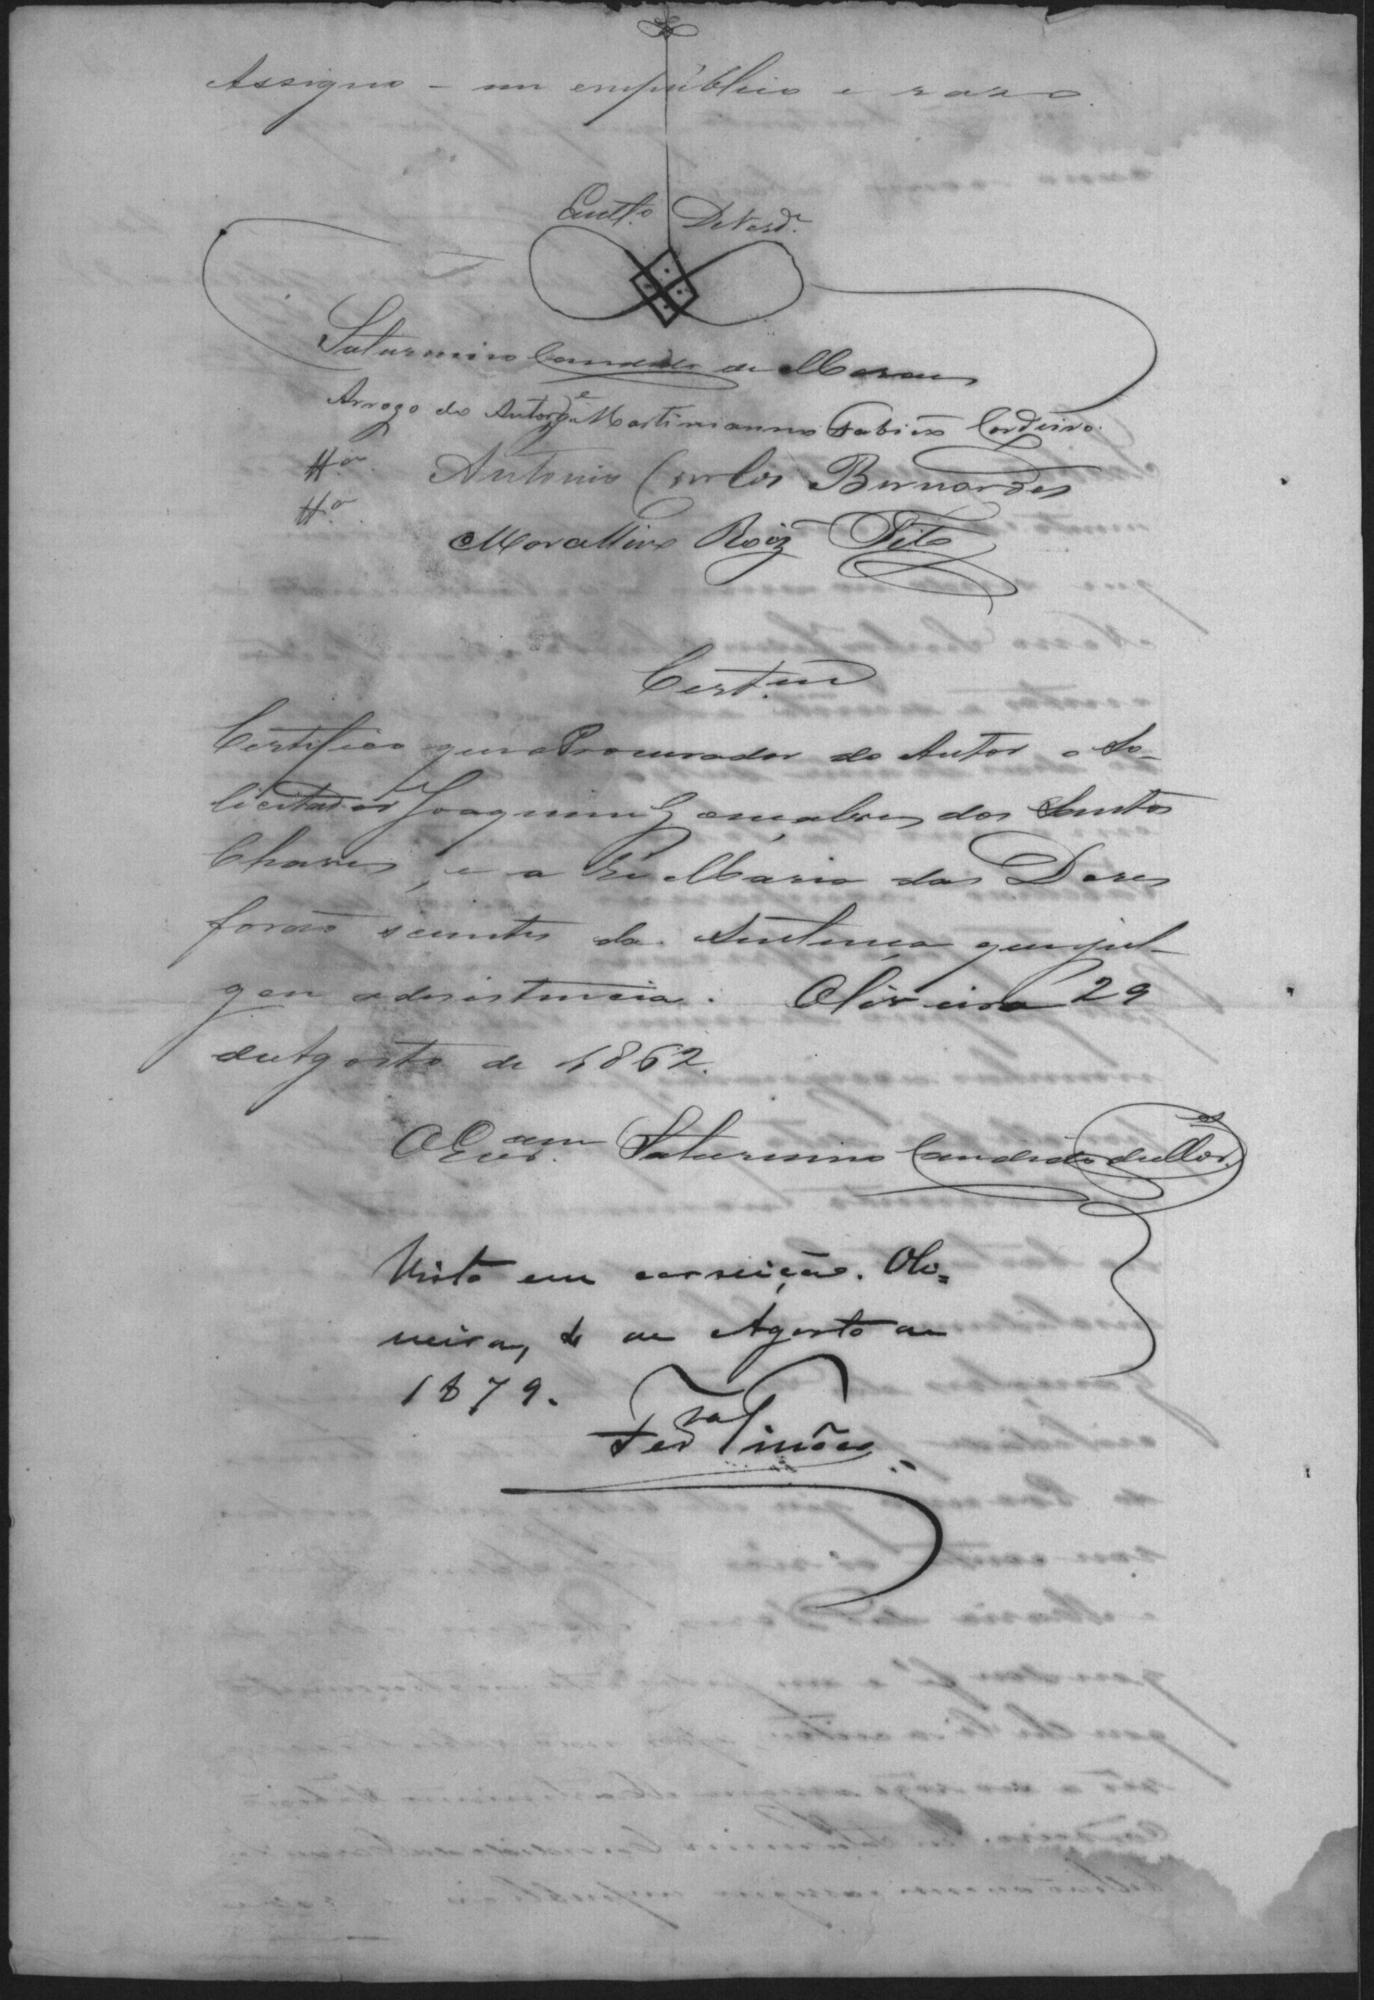 Assigno-me em público e razo.
Em test.o De Verd.e
Saturnino Candido de Moraes
Arrogo do Autor Martinianno Fabiao Cordeiro.
Antonio Carlos Bernardes
Marcellino Roiz Tito
Cert.m
Certifico que o Procurador do Autor o So-
licitador Joaquim Gonçalves dos Santos
Chaves, e a Ré Maria das Dores
forão scientes da Sentença que jul-
gou a desistencia. Oliveira 29
de Agosto de 1862.
O Escr.am Saturnino Candido de Mor.es
Visto em correição. Oli=
veira, 4 de Agosto de
1879.